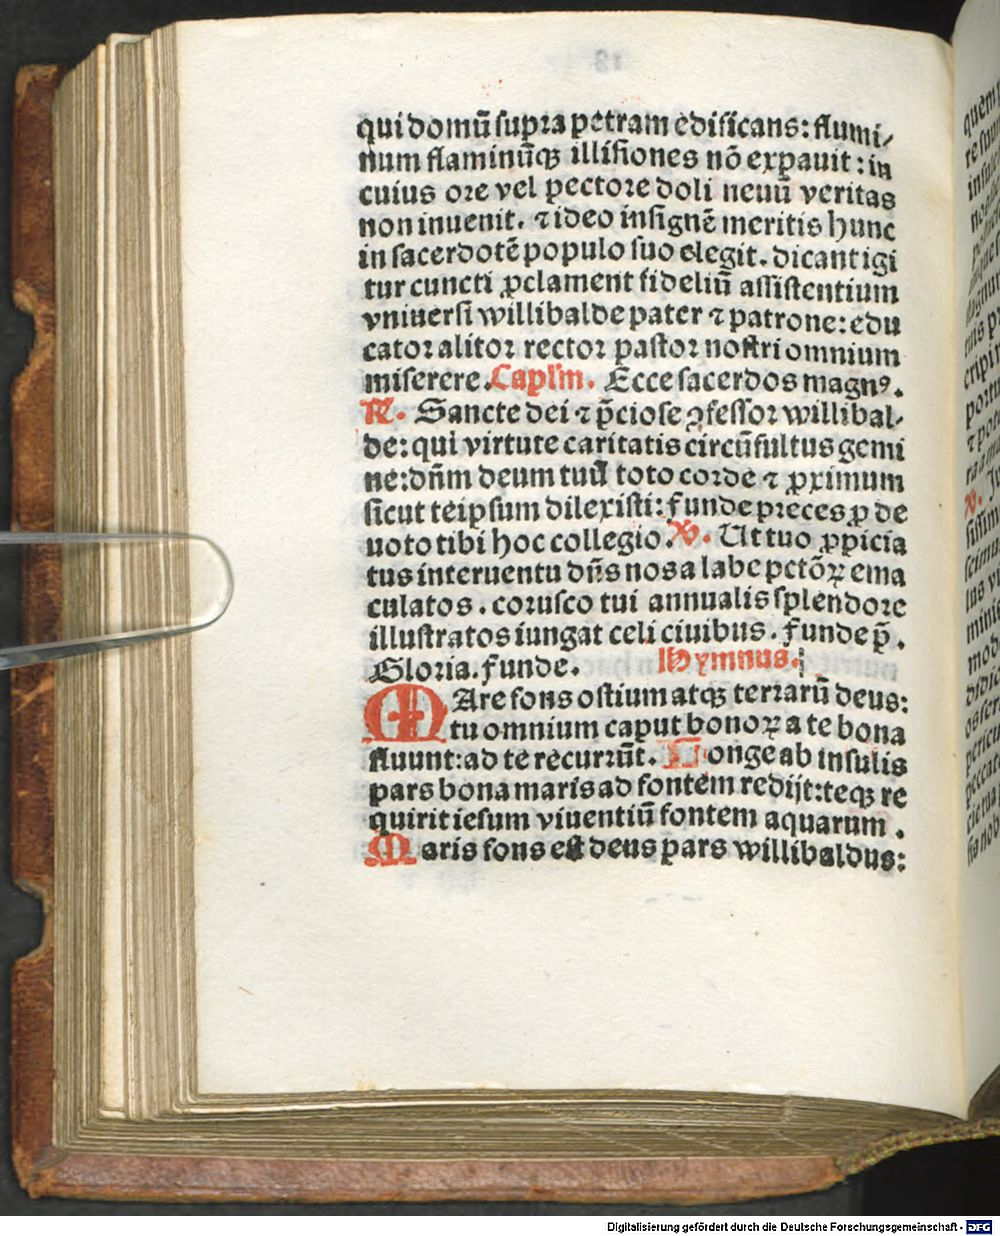 qui domū supra petram edificans: flumi⸗
num flaminūqꝫ illisiones nō expauit: in
cuius ore vel pectore doli neuū veritas
non inuenit. ⁊ ideo insignē meritis hunc
in sacerdotē populo suo elegit. dicant igi
tur cuncti ꝓclament fideliū assistentium
vniuersi willibalde pater ⁊ patrone: edu
cator alitor rector pastor nostri omnium
miserere. Caplm. Ecce sacerdos magnꝰ.
℟. Sancte dei ⁊ p̄ciose ꝯfessor willibal⸗
de: qui virtute caritatis circūfultus gemi
ne: dn̄m deum tuū toto corde ⁊ ꝓximum
sicut teipsum dilexisti: funde preces ꝓ de
uoto tibi hoc collegio. ℣. Ut tuo ꝓpicia
tus interuentu dn̄s nos a labe pctōꝝ ema
culatos. corusco tui annualis splendore
illustratos iungat celi ciuibus. funde p̄.
Gloria. funde. Hymnus.
MAre fons ostium atqꝫ terrarū deus:
tu omnium caput bonoꝝ a te bona
fluunt: ad te recurrūt. Longe ab insulis
pars bona maris ad fontem redijt: teqꝫ re
quirit iesum viuentiū fontem aquarum.
Maris fons est deus pars willibaldus:
Digitalisierung gefördert durch die Deutsche Forschungsgemeinschaft - DFG